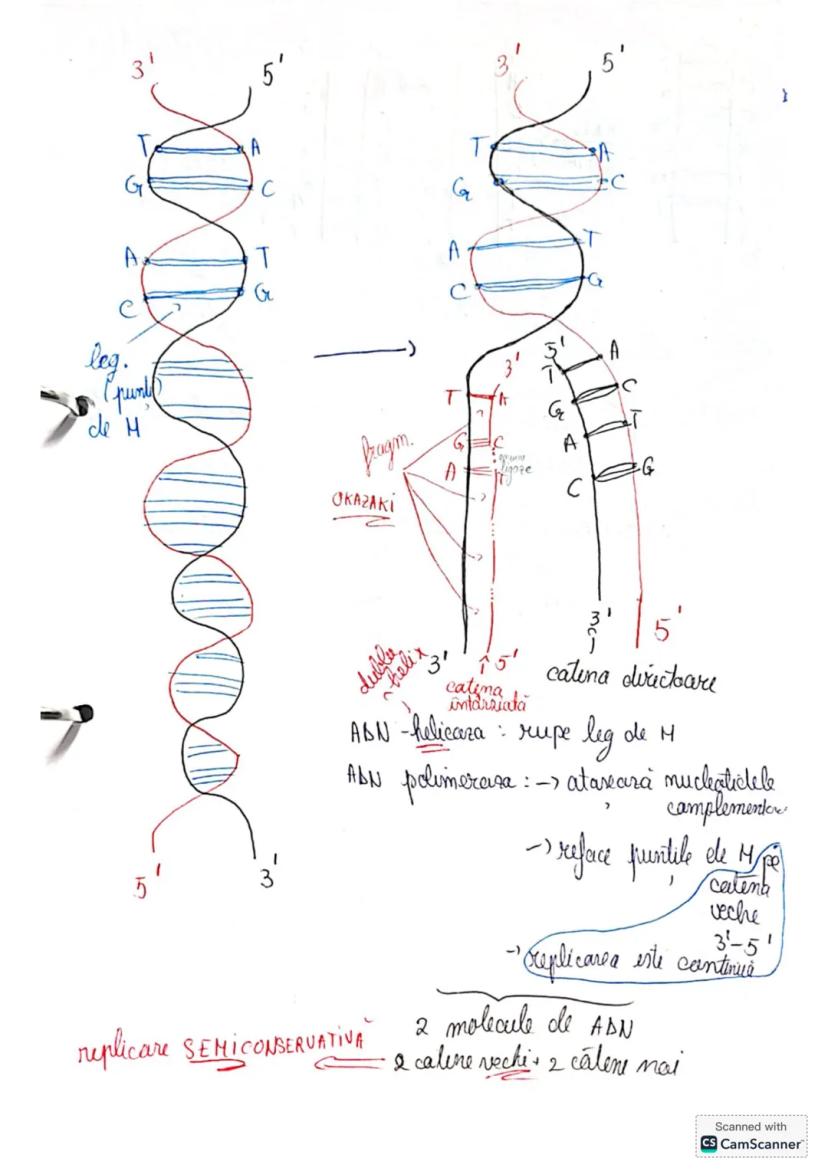 3'
5'
T
A
G
C
A
T
C
G
leg.
(punți
de H
5'
3'
3'
5'
T
A
G
C
A
T
C
G
3'
T
A
G
C
A
T
ligaze
fragm.
OKAZAKI
3'
5'
5'
A
T
C
G
T
A
G
C
3'
5'
dublu
helix
catena
întârziată
catena directoare
ABN -helicaza : rupe leg de H
ABN polimeraza : -> atașează nucleotidele
complementare
-> reface punțile de H pe
catena
veche
3'-5'
-> replicarea este continuă
2 molecule de ABN
2 catene vechi + 2 catene noi
replicare SEMICONSERVATIVĂ
Scanned with
CS CamScanner